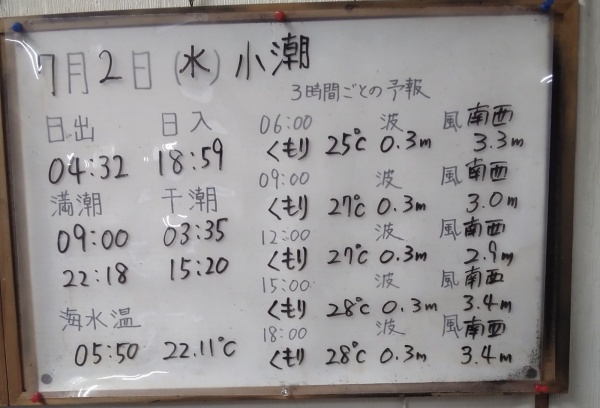 7月2日(水)小潮
3時間ごとの予報
日出 日入
04:32 18:59
満潮 干潮
09:00 03:35
22:18 15:20
海水温
05:50 22.11℃
06:00 波 風 南西
くもり 25℃ 0.3m 3.3m
09:00 波 風 南西
くもり 27℃ 0.3m 3.0m
12:00 波 風 南西
くもり 27℃ 0.3m 2.9m
15:00 波 風 南西
くもり 28℃ 0.3m 3.4m
18:00 波 風 南西
くもり 28℃ 0.3m 3.4m